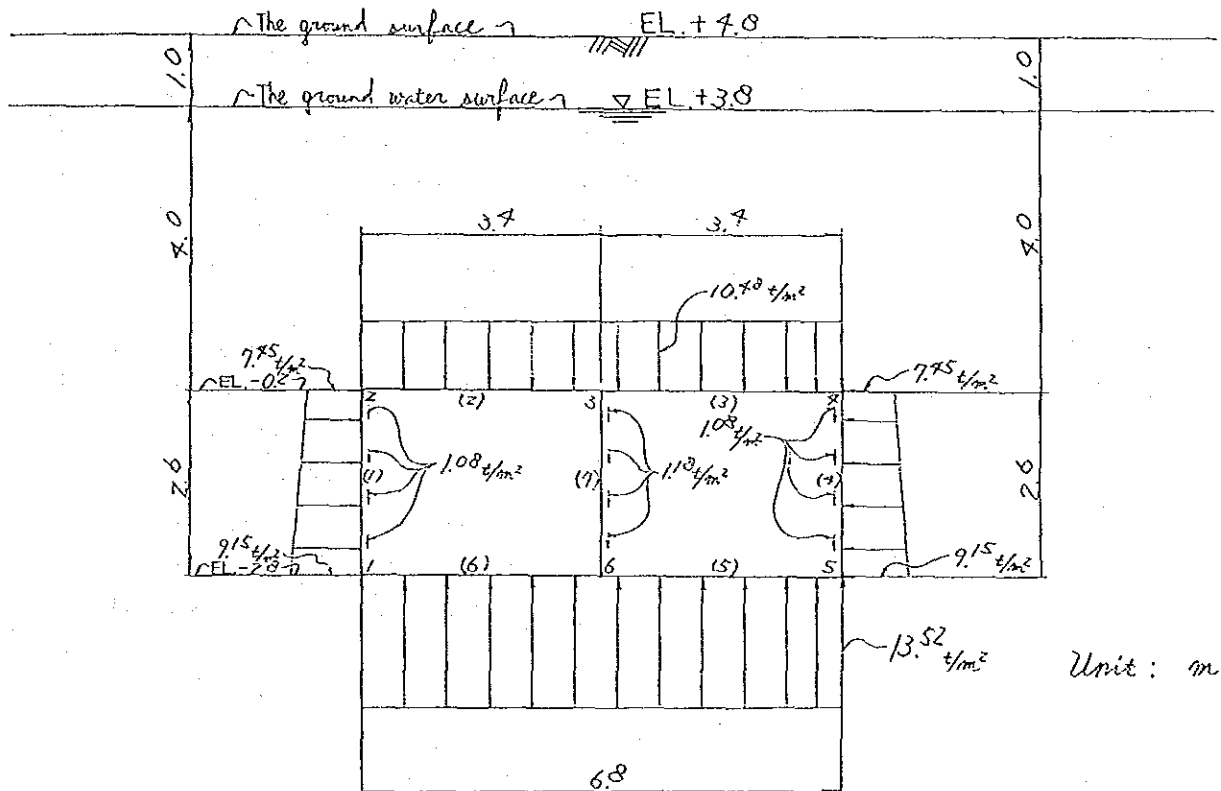 The ground surface EL.+4.8
1.0 1.0
The ground water surface EL.+3.8
4.0 4.0
3.4 3.4
10.48 t/m²
7.45 t/m² 7.45 t/m²
EL.-0.2
2 (2) 3 (3) 4
1.08 t/m²
2.6 (1) 1.08 t/m² (7) 1.18 t/m² (4) 2.6
9.15 t/m² 9.15 t/m²
EL.-2.8
1 (6) 6 (5) 5
13.52 t/m²
Unit: m
6.8